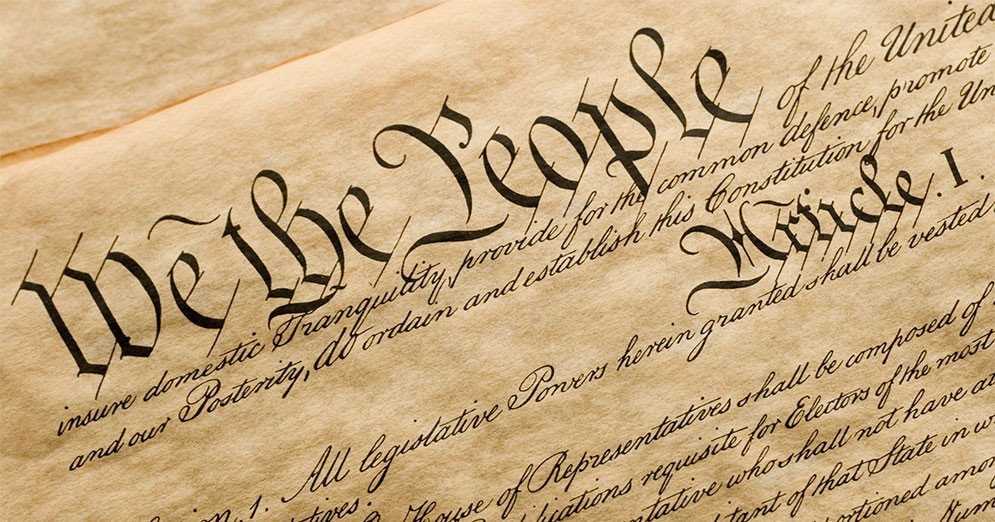 We the People of the United
insure domestic Tranquility, provide for the common defence, promote
and our Posterity, do ordain and establish this Constitution for the Un
Article. I.
on. 1. All legislative Powers herein granted shall be vested
tives.
House of Representatives shall be composed of
ications requisite for Electors of the most
ntative who shall not have at
tant of that State in w
rtioned amon
Num